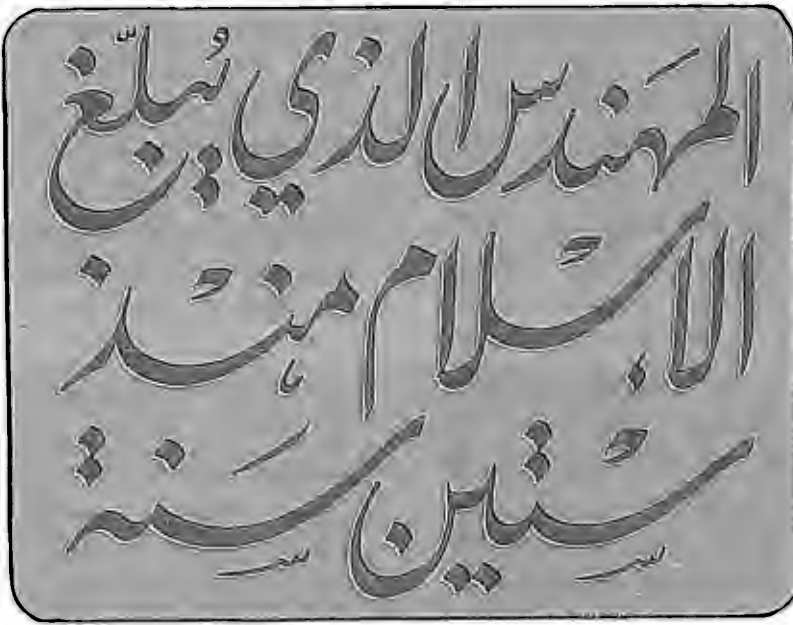 المهَندس الذي يُبلّغ
الإسلام منذ
ستين سَنة